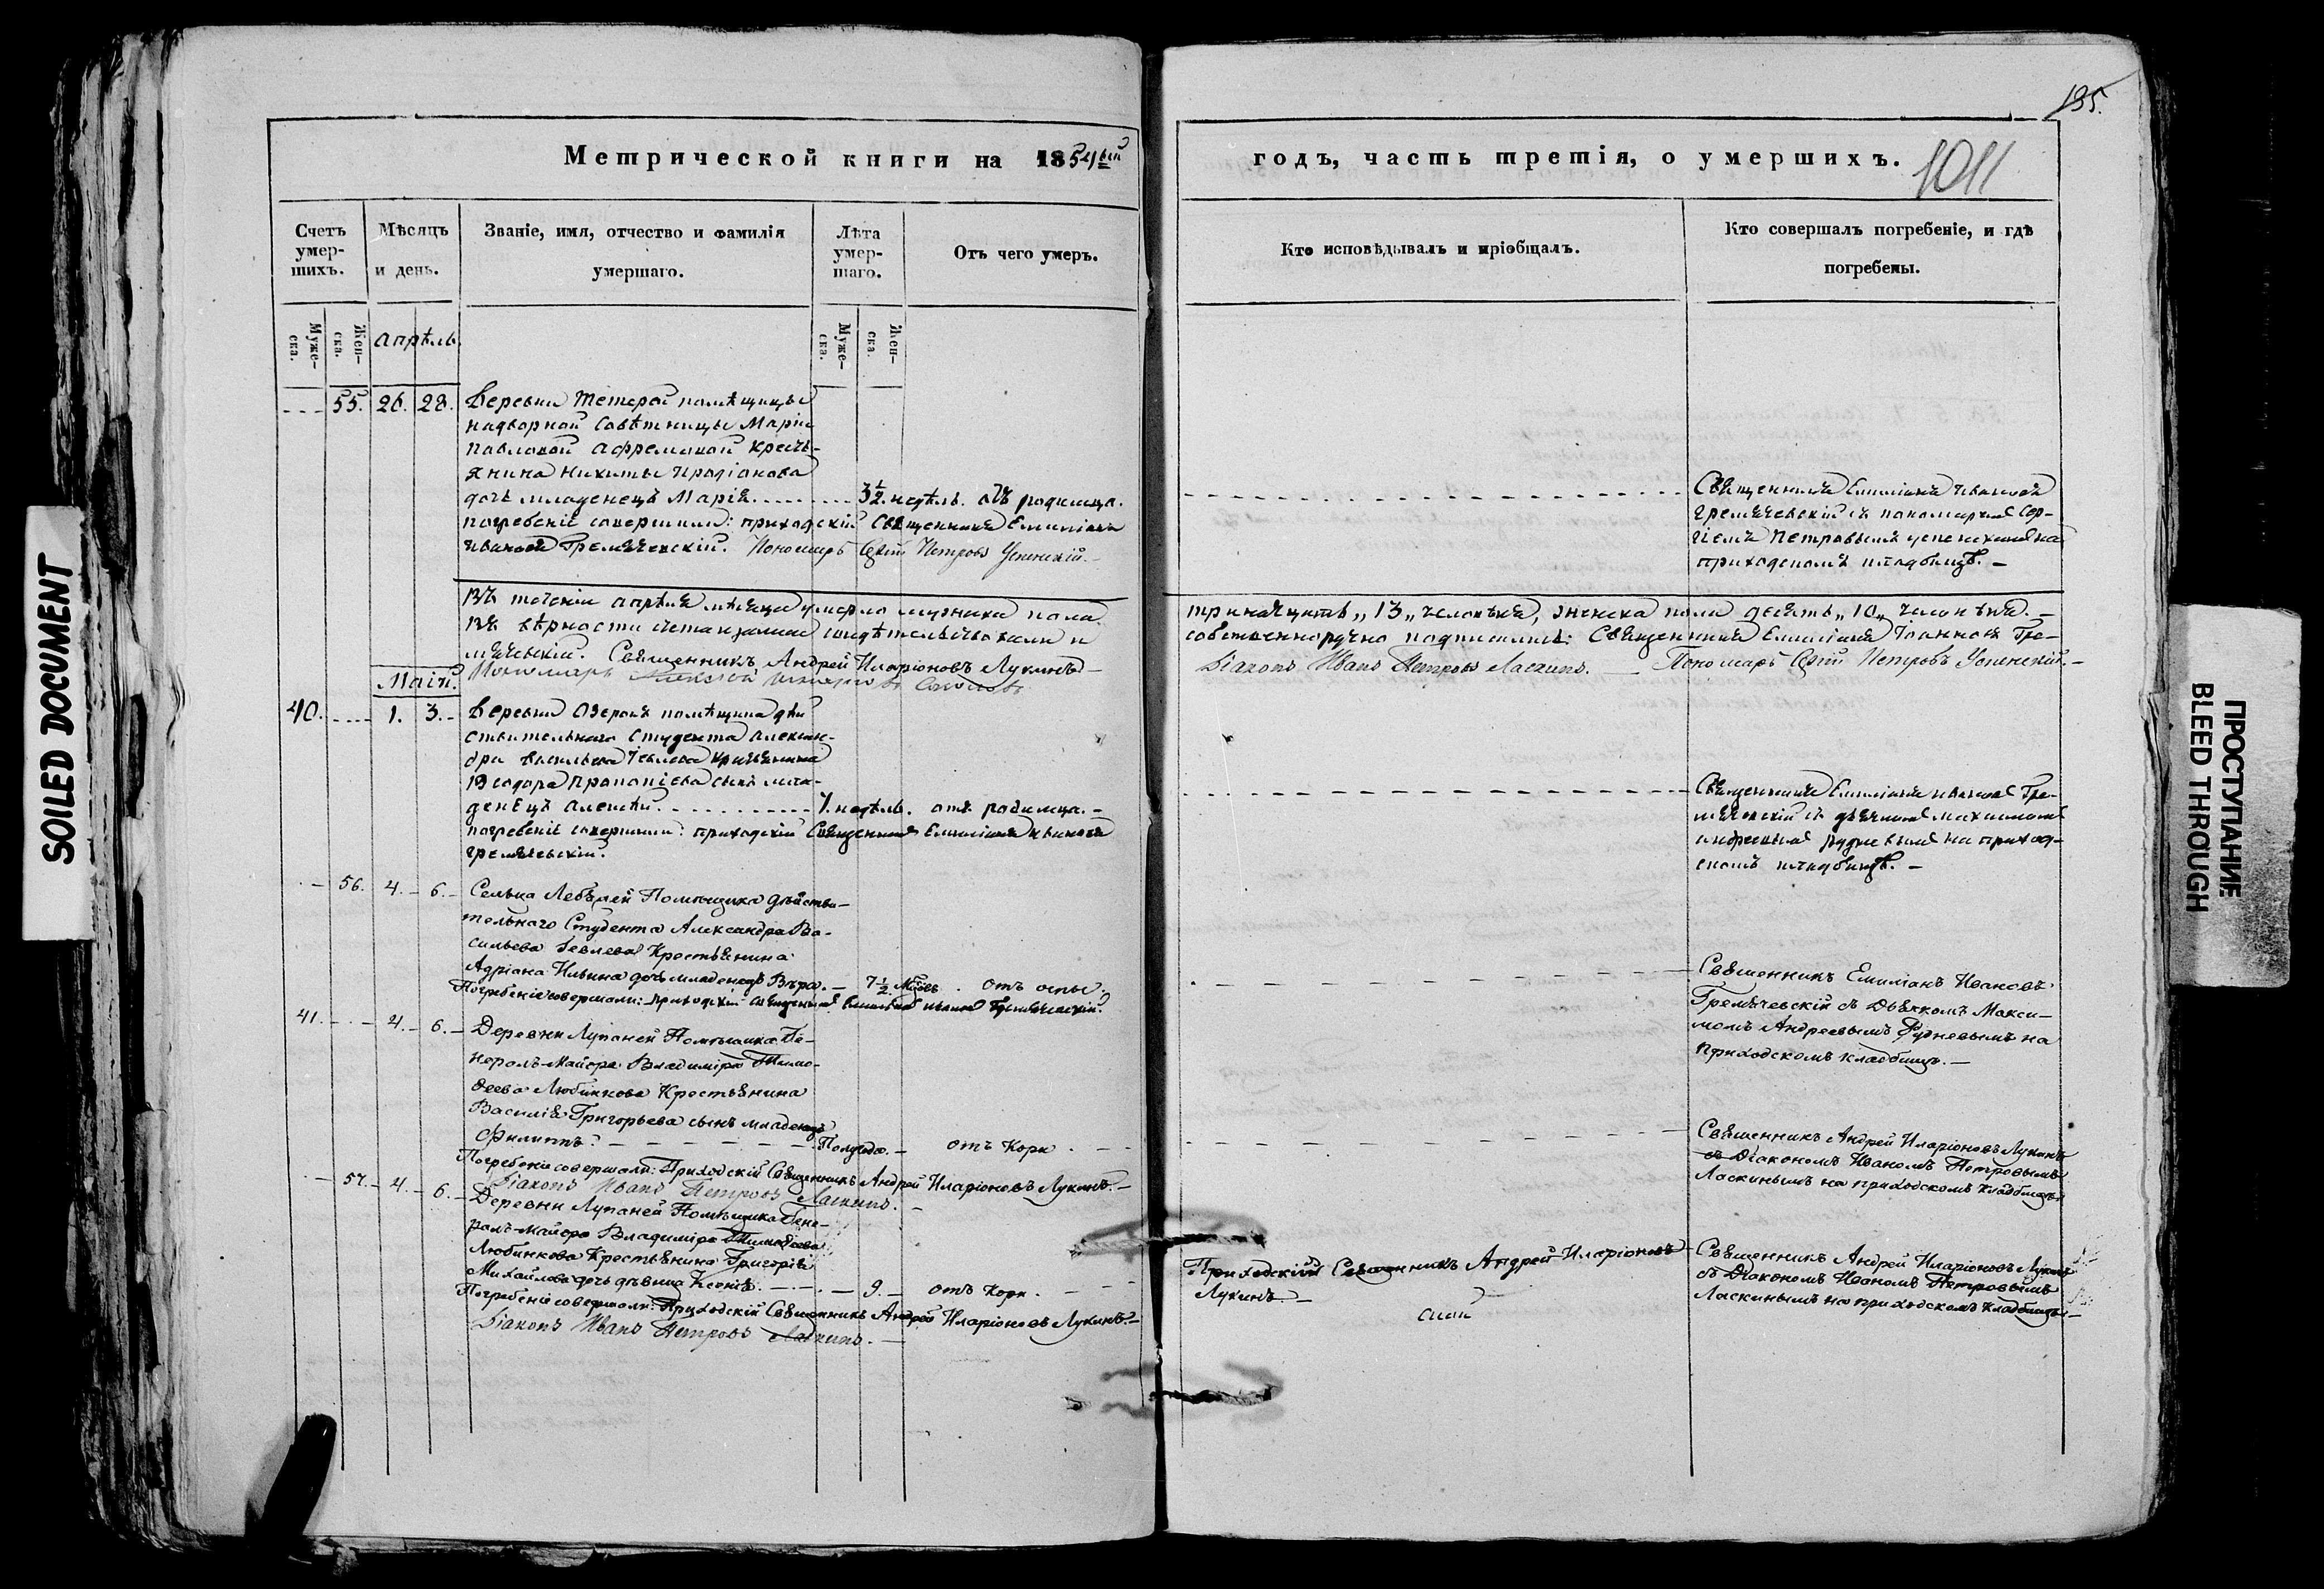 SOILED DOCUMENT
Метрической книги на 1854ый
Счетъ умер-шихъ.
Мѣсяцъ и день.
Званіе, имя, отчество и фамилія умершаго.
Лѣта умер-шаго.
Отъ чего умеръ.
Муже-ска.
Жен-ска.
Апрѣль.
Муже-ска.
Жен-ска.
55. 26. 28. Деревни Тетерей помѣщицы
надворной Совѣтницы Маріи
Павловой Афремовой Кресть-
янина Никиты Иродіонова
дочь младенецъ Марія. 3½ недѣль. отъ родимца.
погребеніе совершали: приходскій Священникъ Емиліанъ
Ивановъ Гремячевскій. Пономарь Сергій Петровъ Успенскій.
Въ теченіи Апрѣля мѣсяца умерло мужеска пола
въ вѣрности
мячевскій. Священникъ Андрей Иларіоновъ Лукинъ
Маій. Пономарь
40. 1. 3. Деревни Озерокъ помѣщика дѣй
ствительнаго Студента Алексан-
дра Васильева Іевлева Крестьянина
Ѳеодора Прокопіева сынъ мла-
денецъ Алексѣй. недѣль. отъ родимца.
погребеніе совершали: приходскій Священникъ Емиліанъ Ивановъ
Гремячевскій.
56. 4. 6. Сельца Помѣщика дѣйстви-
тельнаго Студента Александра Ва-
сильева Іевлева Крестьянина
Адріана Ильина дочь младенецъ Вѣра. 7½ Мѣсяц. отъ оспы.
Погребеніе совершали: Приходскій Священникъ Емиліанъ Ивановъ Гремячевскій.
41. 4. 6. Деревни Лупаней Помѣщика Ге-
нералъ-Маіора Владиміра Тимо-
ѳеева Любинкова Крестьянина
Василія Григорьева сынъ младенецъ
Филиппъ. Полгода. отъ Кори.
Погребеніе совершали: Приходскій Священникъ Андрей Иларіоновъ Лукинъ.
Діаконъ Иванъ Петровъ Ласкинъ.
57. 4. 6. Деревни Лупаней Помѣщика Гене-
ралъ-Маіора Владиміра Тимоѳеева
Любинкова Крестьянина Григорія
Михайлова дочь дѣвица Ксенія. 9. отъ Кори.
Погребеніе совершали: Приходскій Священникъ Андрей Иларіоновъ Лукинъ.
Діаконъ Иванъ Петровъ Ласкинъ.
195.
годъ, часть третія, о умершихъ.
1011
Кто исповѣдывалъ и пріобщалъ.
Кто совершалъ погребеніе, и гдѣ погребены.
Священникъ Емиліанъ Ивановъ
Гремячевскій съ пономаремъ Сер-
гіемъ Петровымъ Успенскимъ на
приходскомъ кладбищѣ.
тринадцать „13„ человѣкъ, женска пола десять „10„ человѣкъ.
собственноручно подписались: Священникъ Емиліанъ Іоанновъ Гре-
Діаконъ Иванъ Петровъ Ласкинъ. Пономарь Сергій Петровъ Успенскій.
Священникъ Емиліанъ Ивановъ Гре-
мячевскій съ дьячкомъ Максимомъ
Андреевымъ Рудневымъ на приход-
скомъ кладбищѣ.
Священникъ Емиліанъ Ивановъ
Гремячевскій съ Дьячкомъ Макси-
момъ Андреевымъ Рудневымъ на
приходскомъ кладбищѣ.
Священникъ Андрей Иларіоновъ Лукинъ
съ Діакономъ Иваномъ Петровымъ
Ласкинымъ на приходскомъ кладбищѣ.
Приходскій Священникъ Андрей Иларіоновъ
Лукинъ.
Священникъ Андрей Иларіоновъ Лукинъ
съ Діакономъ Иваномъ Петровымъ
Ласкинымъ на приходскомъ кладбищѣ.
ПРОСТУПАНИЕ
BLEED THROUGH